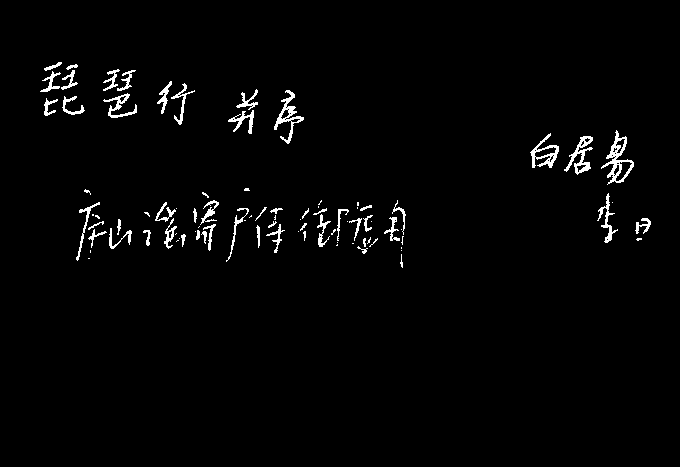 琵琶行 并序
白居易
庐山谣寄卢侍御虚舟
李白